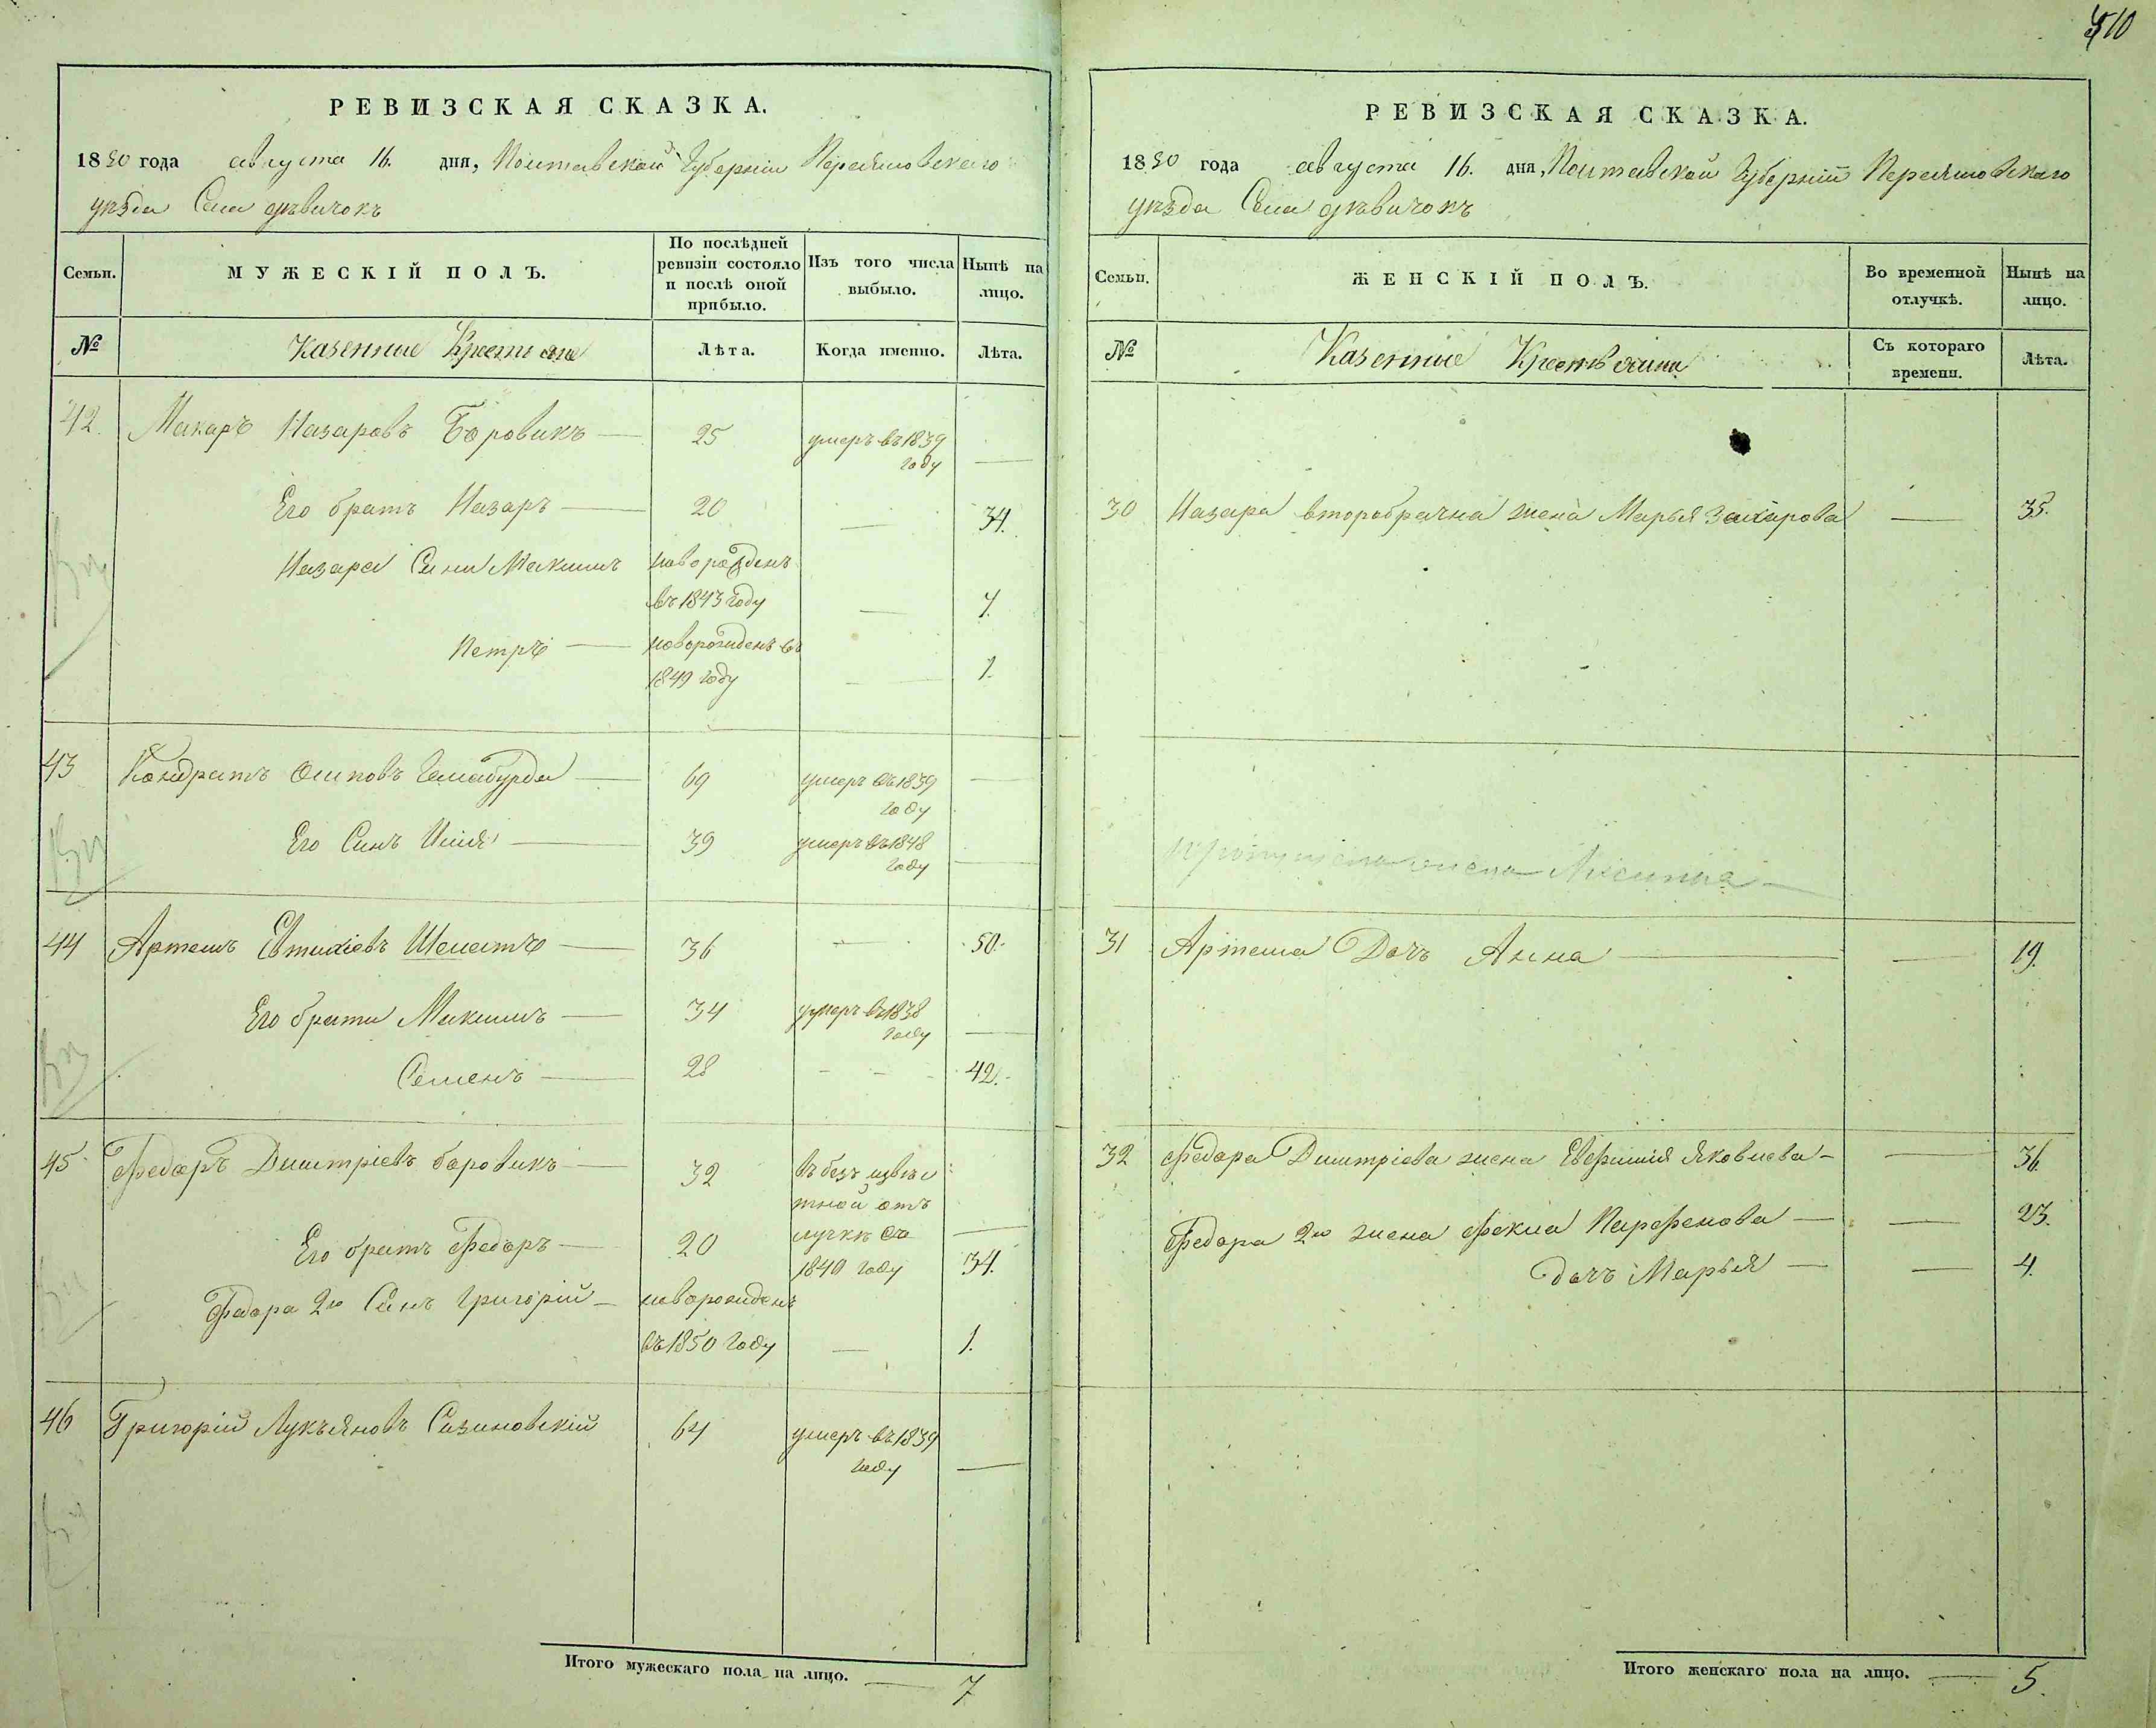 510
РЕВИЗСКАЯ СКАЗКА.
1850 года августа 16. дня, Полтавской Губерніи Переяславскаго
уѣзда Села дѣвичокъ
Семьи.
МУЖЕСКІЙ ПОЛЪ.
По послѣдней
ревизіи состояло
и послѣ оной
прибыло.
Изъ того числа
выбыло.
Нынѣ на
лицо.
№
Казенные Крестьяне
Лѣта.
Когда именно.
Лѣта.
42. Макаръ Назаровъ Боровикъ — 25 умеръ въ 1839
году —
Его братъ Назаръ — 20 — 34.
Назара Сини Максимъ новорожденъ
въ 1843 году — 7.
Петръ — новорожденъ въ
1849 году — 1.
43 Кондратъ Осиповъ — 69 умеръ въ 1839
году —
Его Синъ Илія — 39 умеръ въ 1848
году —
44 Артемъ Евтихіевъ Шематъ — 36 — 50.
Его брати Максимъ — 34 умеръ въ 1838
году —
Семенъ — 28 — 42.
45 Федоръ Дмитріевъ боровикъ — 32 въ безъ извѣс
тной от
лучкѣ съ
1840 году —
Его братъ Федоръ — 20 34.
Федора 2го Синъ Григорій — новорожденъ
въ 1850 году — 1.
46 Григорій Лукъяновъ Сазановскій 64 умеръ въ 1839
году —
Итого мужескаго пола на лицо. — 7
РЕВИЗСКАЯ СКАЗКА.
1850 года августа 16. дня, Полтавской Губерніи Переяславскаго
уѣзда Села дѣвичокъ
Семьи.
ЖЕНСКІЙ ПОЛЪ.
Во временной
отлучкѣ.
Нынѣ на
лицо.
№
Казенные Крестьянки
Съ котораго
времени.
Лѣта.
30 Назара второбрачна жена Марья Захарова — 35.
31 Артема Дочъ Анна — — 19.
32 Федора Дмитріева жена Евфимія Яковлева — — 36
Федора 2го жена Фекла Парфенова — — 23.
дочъ Марья — — 4.
Итого женскаго пола на лицо. — 5.